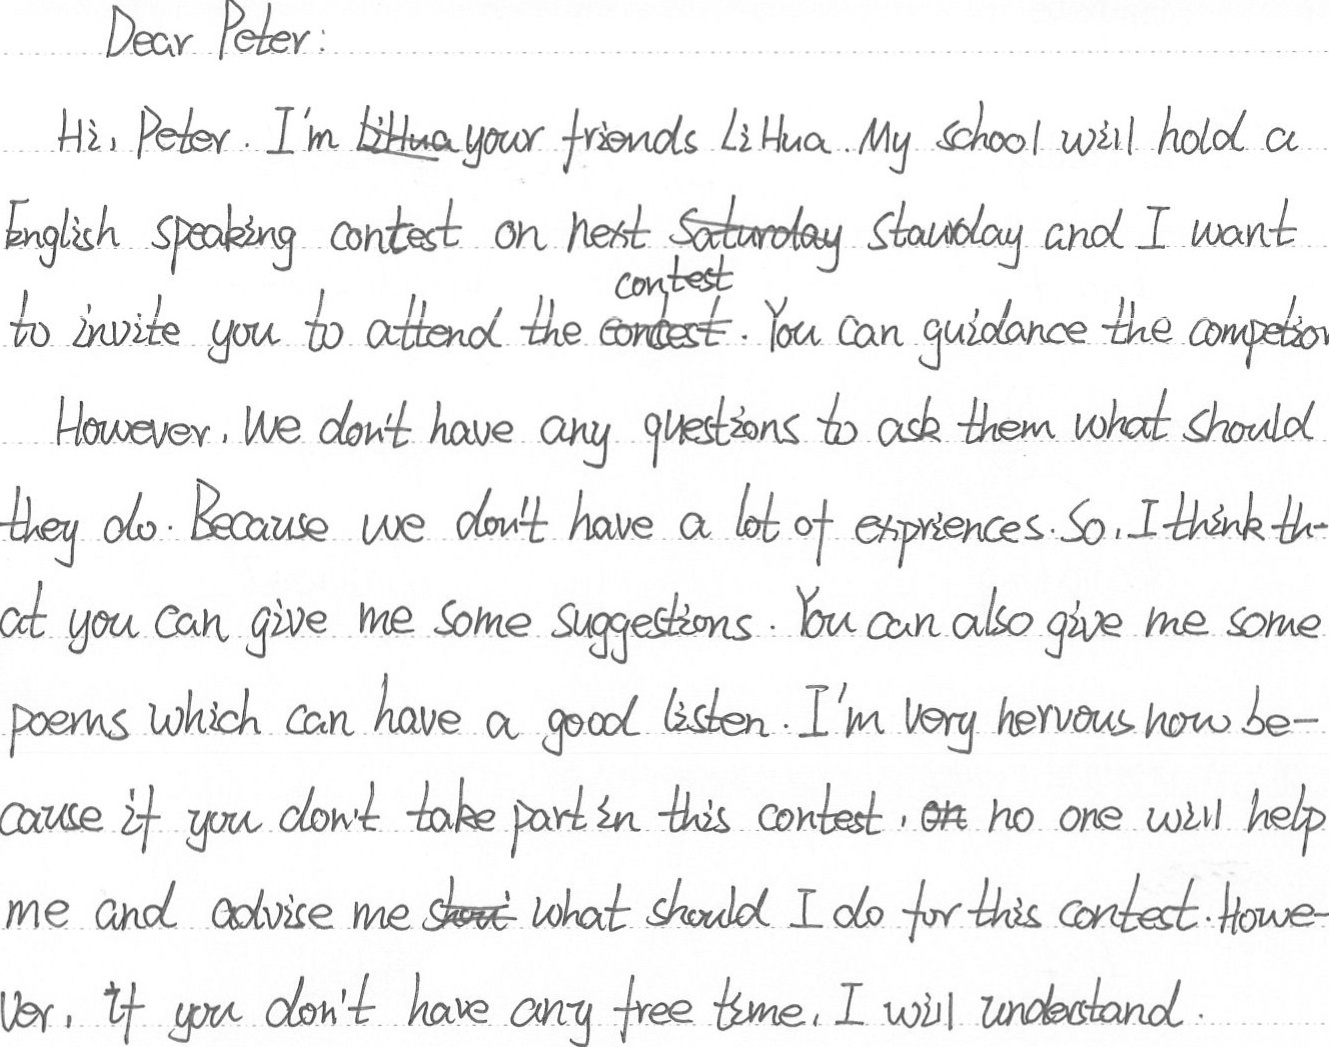 Dear Peter:
Hi, Peter. I'm your friends Li Hua. My school will hold a
English speaking contest on next Staurday and I want
to invite you to attend the contest. You can guidance the competion
However, We don't have any questions to ask them what should
they do. Because we don't have a lot of expriences. So, I think th-
at you can give me some suggestions. You can also give me some
poems which can have a good listen. I'm very nervous now be-
cause if you don't take part in this contest, no one will help
me and advise me what should I do for this contest. Howe-
ver, if you don't have any free time, I will understand.